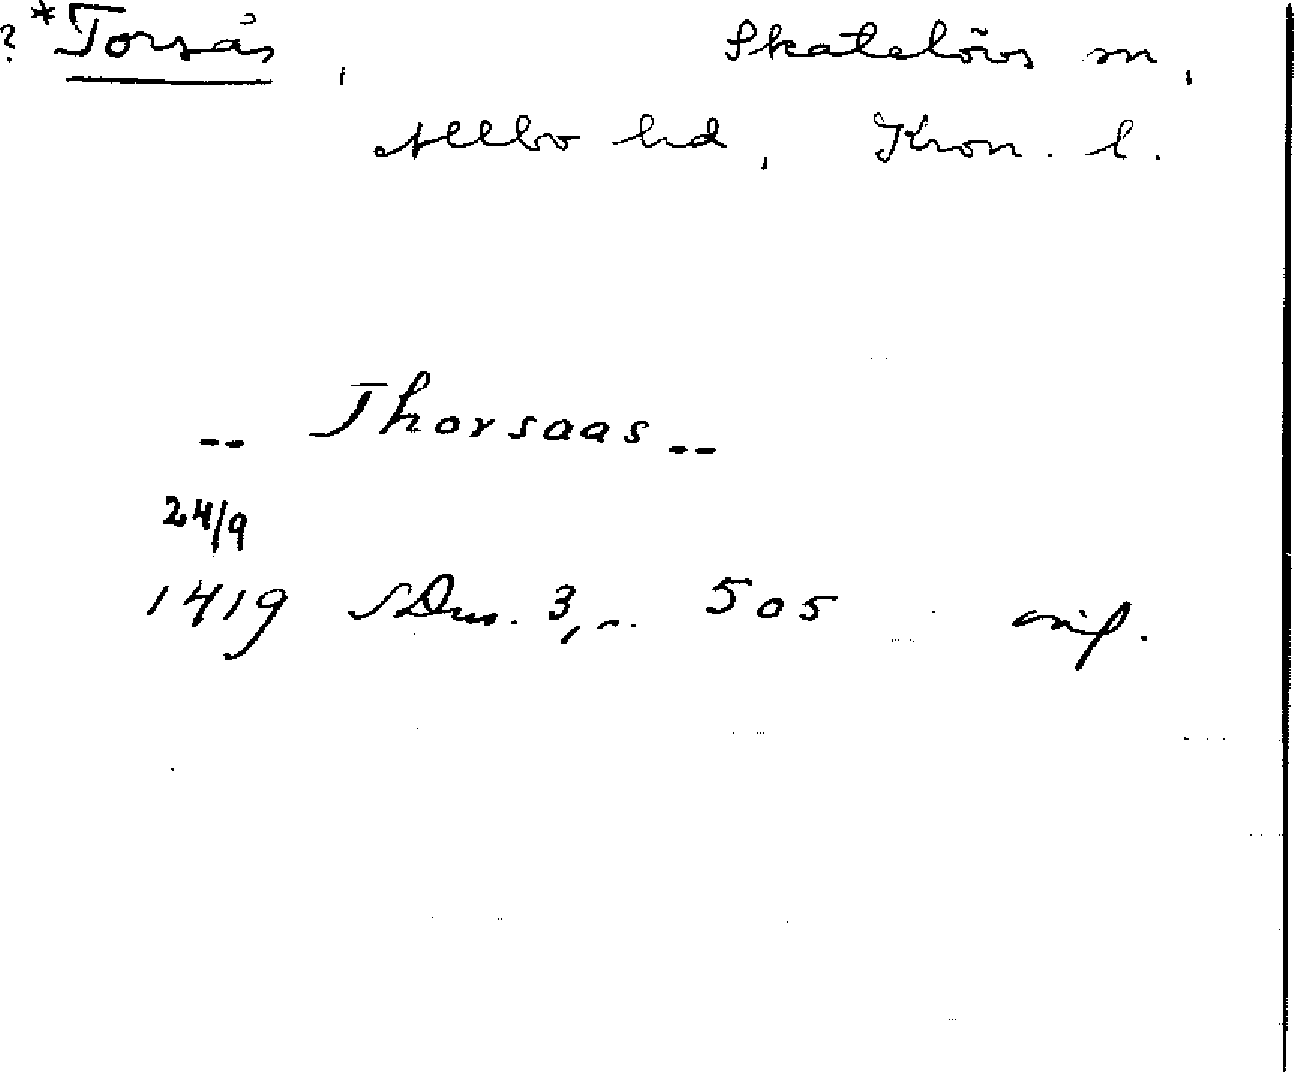 ? * Torsås, Skatelövs sn,
Allbo hd, Kron. l.
-- Thorsaas --
24/9
1419 SDns. 3, 505 orig.